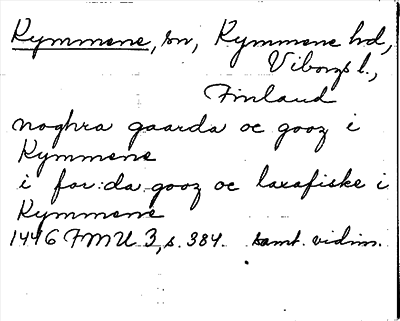 Kymmene, sn, Kymmene hd,
Viborgs l.,
Finland
noghra gaarda oc gooz i
Kymmene
i for:da gooz oc laxafiske i
Kymmene
1446 FMU 3, s. 384. samt. vidim.